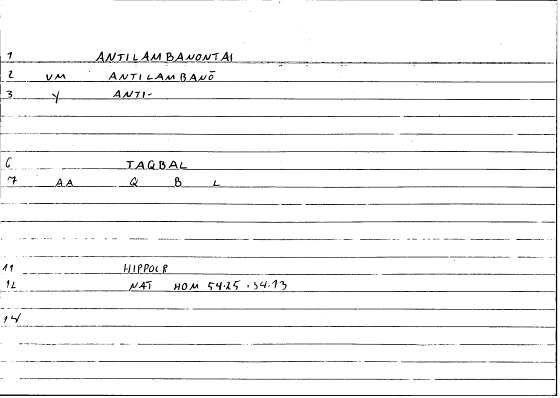 1 ANTILAMBANONTAI
2 VM ANTILAMBANŌ
3 Y ANTI-
6 TAQBAL
7 AA Q B L
11 HIPPOCR
12 NAT HOM 54.25 .34.13
14